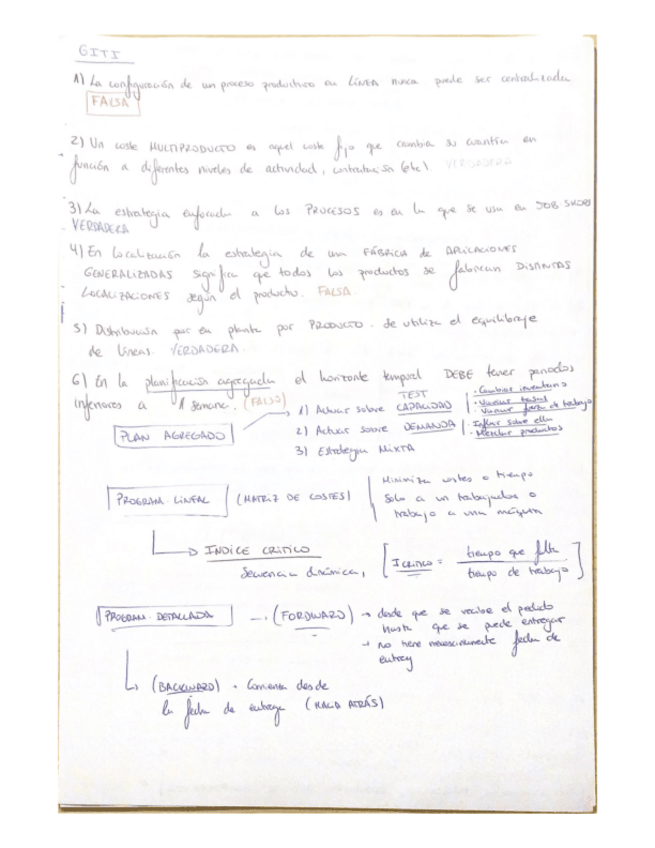 GITI
1) La configuración de un proceso productivo en LÍNEA nunca puede ser centralizada
FALSA
2) Un coste MULTIPRODUCTO es aquel coste fijo que cambia su cuantía en
función a diferentes niveles de actividad, contratación (etc). VERDADERA
3) La estrategia enfocada a los PROCESOS es en la que se usa en JOB SHOPS
VERDADERA
4) En Localización la estrategia de una FÁBRICA de APLICACIONES
GENERALIZADAS significa que todos los productos se fabrican DISTINTAS
LOCALIZACIONES según el producto. FALSA
5) Distribución por en planta por PRODUCTO. Se utiliza el equilibraje
de líneas. VERDADERA.
6) En la planificación agregada el horizonte temporal DEBE tener periodos
inferiores a 1 semana. (FALSO)
PLAN AGREGADO
TEST
1) Actuar sobre CAPACIDAD
· Cambiar inventario
· Variar fuerza de trabajo
2) Actuar sobre DEMANDA
· Influir sobre ella
· Mezclar productos
3) Estrategia MIXTA
PROGRAM. LINEAL (MATRIZ DE COSTES)
Minimiza costes o tiempo
Solo a un trabajador o
trabajo a una máquina
INDICE CRITICO
Secuencia dinámica,
I CRITICO = tiempo que falta
tiempo de trabajo
PROGRAM. DETALLADA (FORDWARD) → desde que se recibe el pedido
hasta que se puede entregar
→ no tiene necesariamente fecha de
entrega
(BACKWARD) · Comienza desde
la fecha de entrega (HACIA ATRÁS)